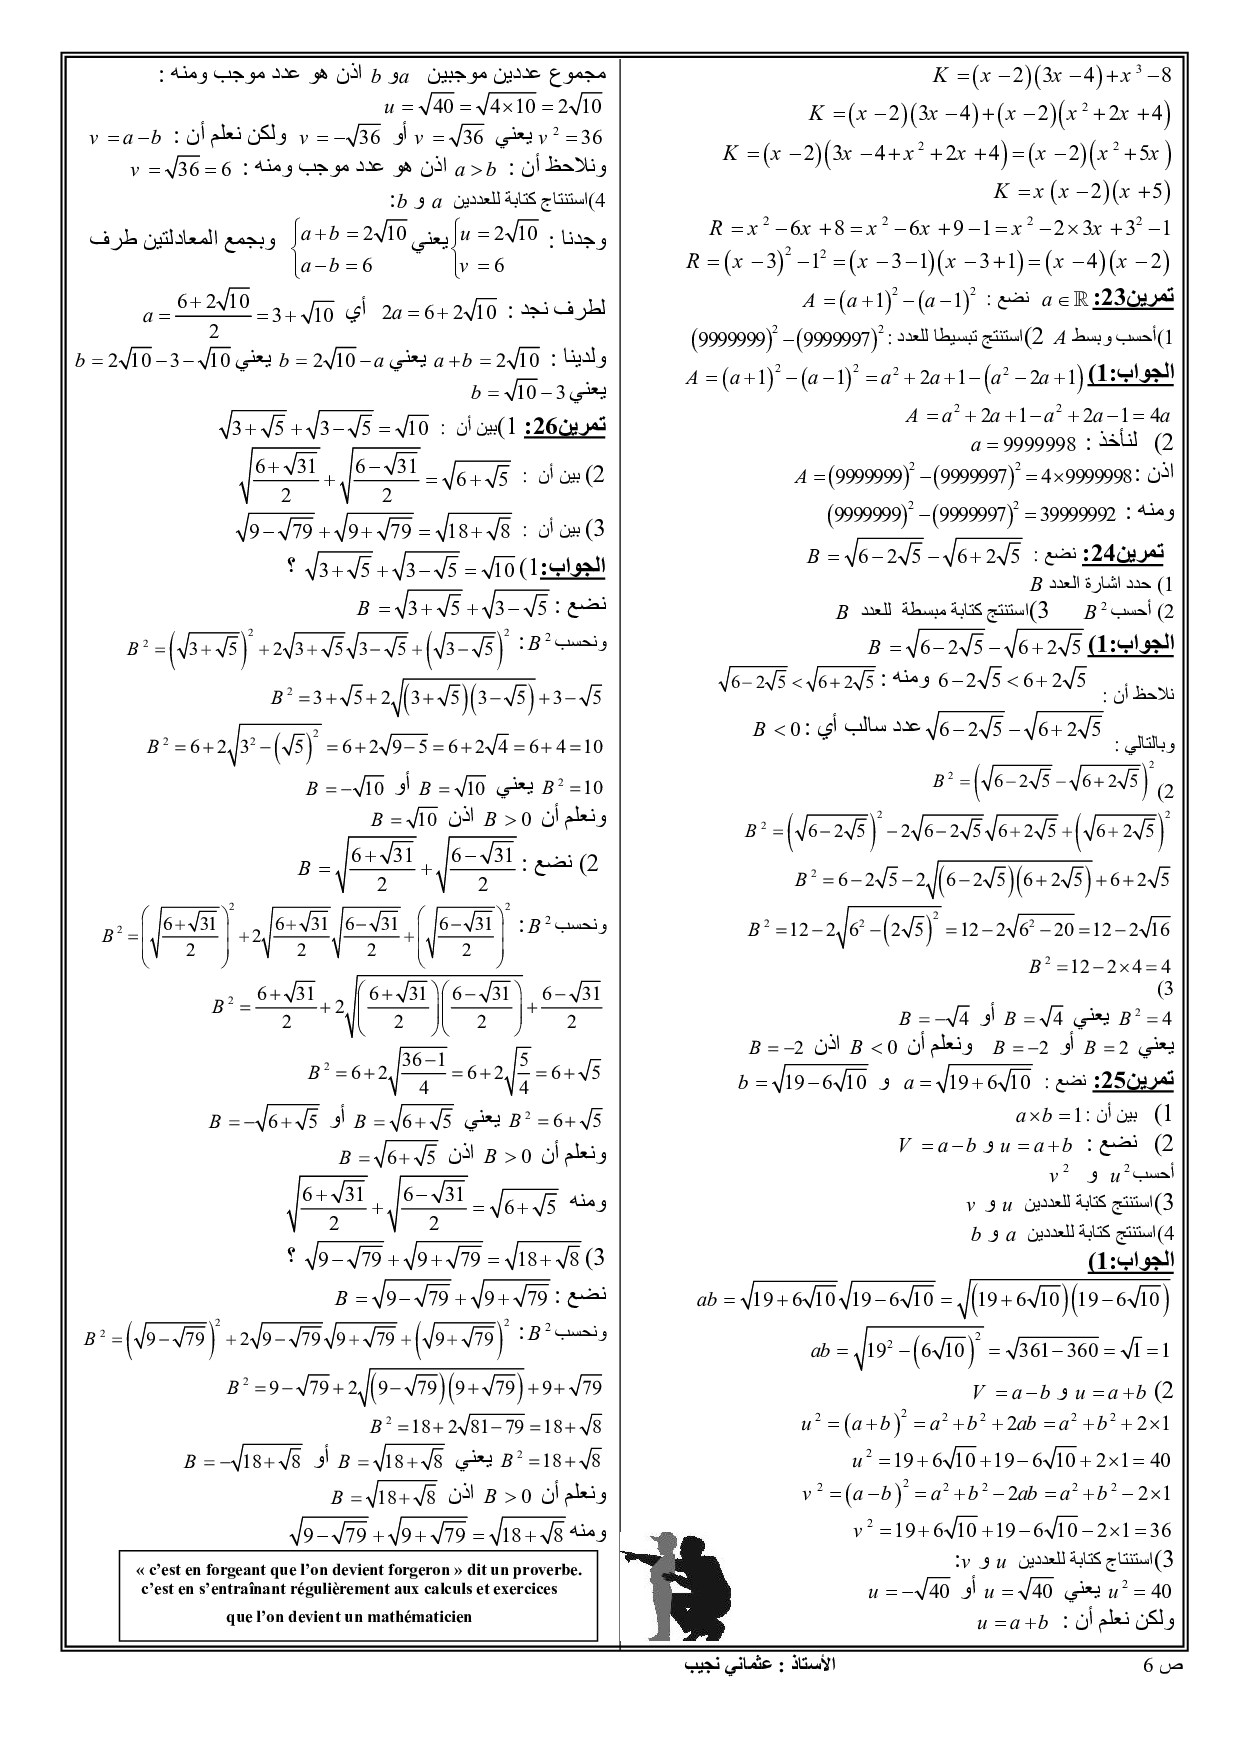 K = (x − 2)(3x − 4) + x³ − 8
K = (x − 2)(3x − 4) + (x − 2)(x² + 2x + 4)
K = (x − 2)(3x − 4 + x² + 2x + 4) = (x − 2)(x² + 5x)
K = x(x − 2)(x + 5)
R = x² − 6x + 8 = x² − 6x + 9 − 1 = x² − 2×3x + 3² − 1
R = (x − 3)² − 1² = (x − 3 − 1)(x − 3 + 1) = (x − 4)(x − 2)
تمرين23: a ∈ ℝ نضع : A = (a + 1)² − (a − 1)²
1)أحسب وبسط A 2)استنتج تبسيطا للعدد : (9999999)² − (9999997)²
الجواب:1) A = (a + 1)² − (a − 1)² = a² + 2a + 1 − (a² − 2a + 1)
A = a² + 2a + 1 − a² + 2a − 1 = 4a
2) لنأخذ : a = 9999998
اذن : A = (9999999)² − (9999997)² = 4×9999998
ومنه : (9999999)² − (9999997)² = 39999992
تمرين24: نضع : B = √(6 − 2√5) − √(6 + 2√5)
1) حدد اشارة العدد B
2) أحسب B² 3)استنتج كتابة مبسطة للعدد B
الجواب:1) B = √(6 − 2√5) − √(6 + 2√5)
نلاحظ أن : 6 − 2√5 < 6 + 2√5 ومنه : √(6 − 2√5) < √(6 + 2√5)
وبالتالي : √(6 − 2√5) − √(6 + 2√5) عدد سالب أي : B < 0
2) B² = (√(6 − 2√5) − √(6 + 2√5))²
B² = (√(6 − 2√5))² − 2√(6 − 2√5)√(6 + 2√5) + (√(6 + 2√5))²
B² = 6 − 2√5 − 2√((6 − 2√5)(6 + 2√5)) + 6 + 2√5
B² = 12 − 2√(6² − (2√5)²) = 12 − 2√(6² − 20) = 12 − 2√16
B² = 12 − 2×4 = 4
3)
B² = 4 يعني B = √4 أو B = −√4
يعني B = 2 أو B = −2 ونعلم أن B < 0 اذن B = −2
تمرين25: نضع : a = √(19 + 6√10) و b = √(19 − 6√10)
1) بين أن : a×b = 1
2) نضع : u = a + b و V = a − b
أحسب u² و v²
3)استنتج كتابة للعددين u و v
4)استنتج كتابة للعددين a و b
الجواب:1)
ab = √(19 + 6√10)√(19 − 6√10) = √((19 + 6√10)(19 − 6√10))
ab = √(19² − (6√10)²) = √(361 − 360) = √1 = 1
2) u = a + b و V = a − b
u² = (a + b)² = a² + b² + 2ab = a² + b² + 2×1
u² = 19 + 6√10 + 19 − 6√10 + 2×1 = 40
v² = (a − b)² = a² + b² − 2ab = a² + b² − 2×1
v² = 19 + 6√10 + 19 − 6√10 − 2×1 = 36
3)استنتاج كتابة للعددين u و v:
u² = 40 يعني u = √40 أو u = −√40
ولكن نعلم أن : u = a + b
مجموع عددين موجبين a و b اذن هو عدد موجب ومنه :
u = √40 = √(4×10) = 2√10
v² = 36 يعني v = √36 أو v = −√36 ولكن نعلم أن : v = a − b
ونلاحظ أن : a > b اذن هو عدد موجب ومنه : v = √36 = 6
4)استنتاج كتابة للعددين a و b:
وجدنا : {u = 2√10, v = 6 يعني {a + b = 2√10, a − b = 6 وبجمع المعادلتين طرف
لطرف نجد : 2a = 6 + 2√10 أي a = (6 + 2√10)/2 = 3 + √10
ولدينا : a + b = 2√10 يعني b = 2√10 − a يعني b = 2√10 − 3 − √10
يعني b = √10 − 3
تمرين26: 1)بين أن : √(3 + √5) + √(3 − √5) = √10
2) بين أن : √((6 + √31)/2) + √((6 − √31)/2) = √(6 + √5)
3) بين أن : √(9 − √79) + √(9 + √79) = √(18 + √8)
الجواب:1) √(3 + √5) + √(3 − √5) = √10 ؟
نضع : B = √(3 + √5) + √(3 − √5)
ونحسب B² : B² = (√(3 + √5))² + 2√(3 + √5)√(3 − √5) + (√(3 − √5))²
B² = 3 + √5 + 2√((3 + √5)(3 − √5)) + 3 − √5
B² = 6 + 2√(3² − (√5)²) = 6 + 2√(9 − 5) = 6 + 2√4 = 6 + 4 = 10
B² = 10 يعني B = √10 أو B = −√10
ونعلم أن B > 0 اذن B = √10
2) نضع : B = √((6 + √31)/2) + √((6 − √31)/2)
ونحسب B² : B² = (√((6 + √31)/2))² + 2√((6 + √31)/2)√((6 − √31)/2) + (√((6 − √31)/2))²
B² = (6 + √31)/2 + 2√(((6 + √31)/2)((6 − √31)/2)) + (6 − √31)/2
B² = 6 + 2√((36 − 1)/4) = 6 + 2√(5/4) = 6 + √5
B² = 6 + √5 يعني B = √(6 + √5) أو B = −√(6 + √5)
ونعلم أن B > 0 اذن B = √(6 + √5)
ومنه √((6 + √31)/2) + √((6 − √31)/2) = √(6 + √5)
3) √(9 − √79) + √(9 + √79) = √(18 + √8) ؟
نضع : B = √(9 − √79) + √(9 + √79)
ونحسب B² : B² = (√(9 − √79))² + 2√(9 − √79)√(9 + √79) + (√(9 + √79))²
B² = 9 − √79 + 2√((9 − √79)(9 + √79)) + 9 + √79
B² = 18 + 2√(81 − 79) = 18 + √8
B² = 18 + √8 يعني B = √(18 + √8) أو B = −√(18 + √8)
ونعلم أن B > 0 اذن B = √(18 + √8)
ومنه √(9 − √79) + √(9 + √79) = √(18 + √8)
« c’est en forgeant que l’on devient forgeron » dit un proverbe.
c’est en s’entraînant régulièrement aux calculs et exercices
que l’on devient un mathématicien
ص 6
الأستاذ : عثماني نجيب